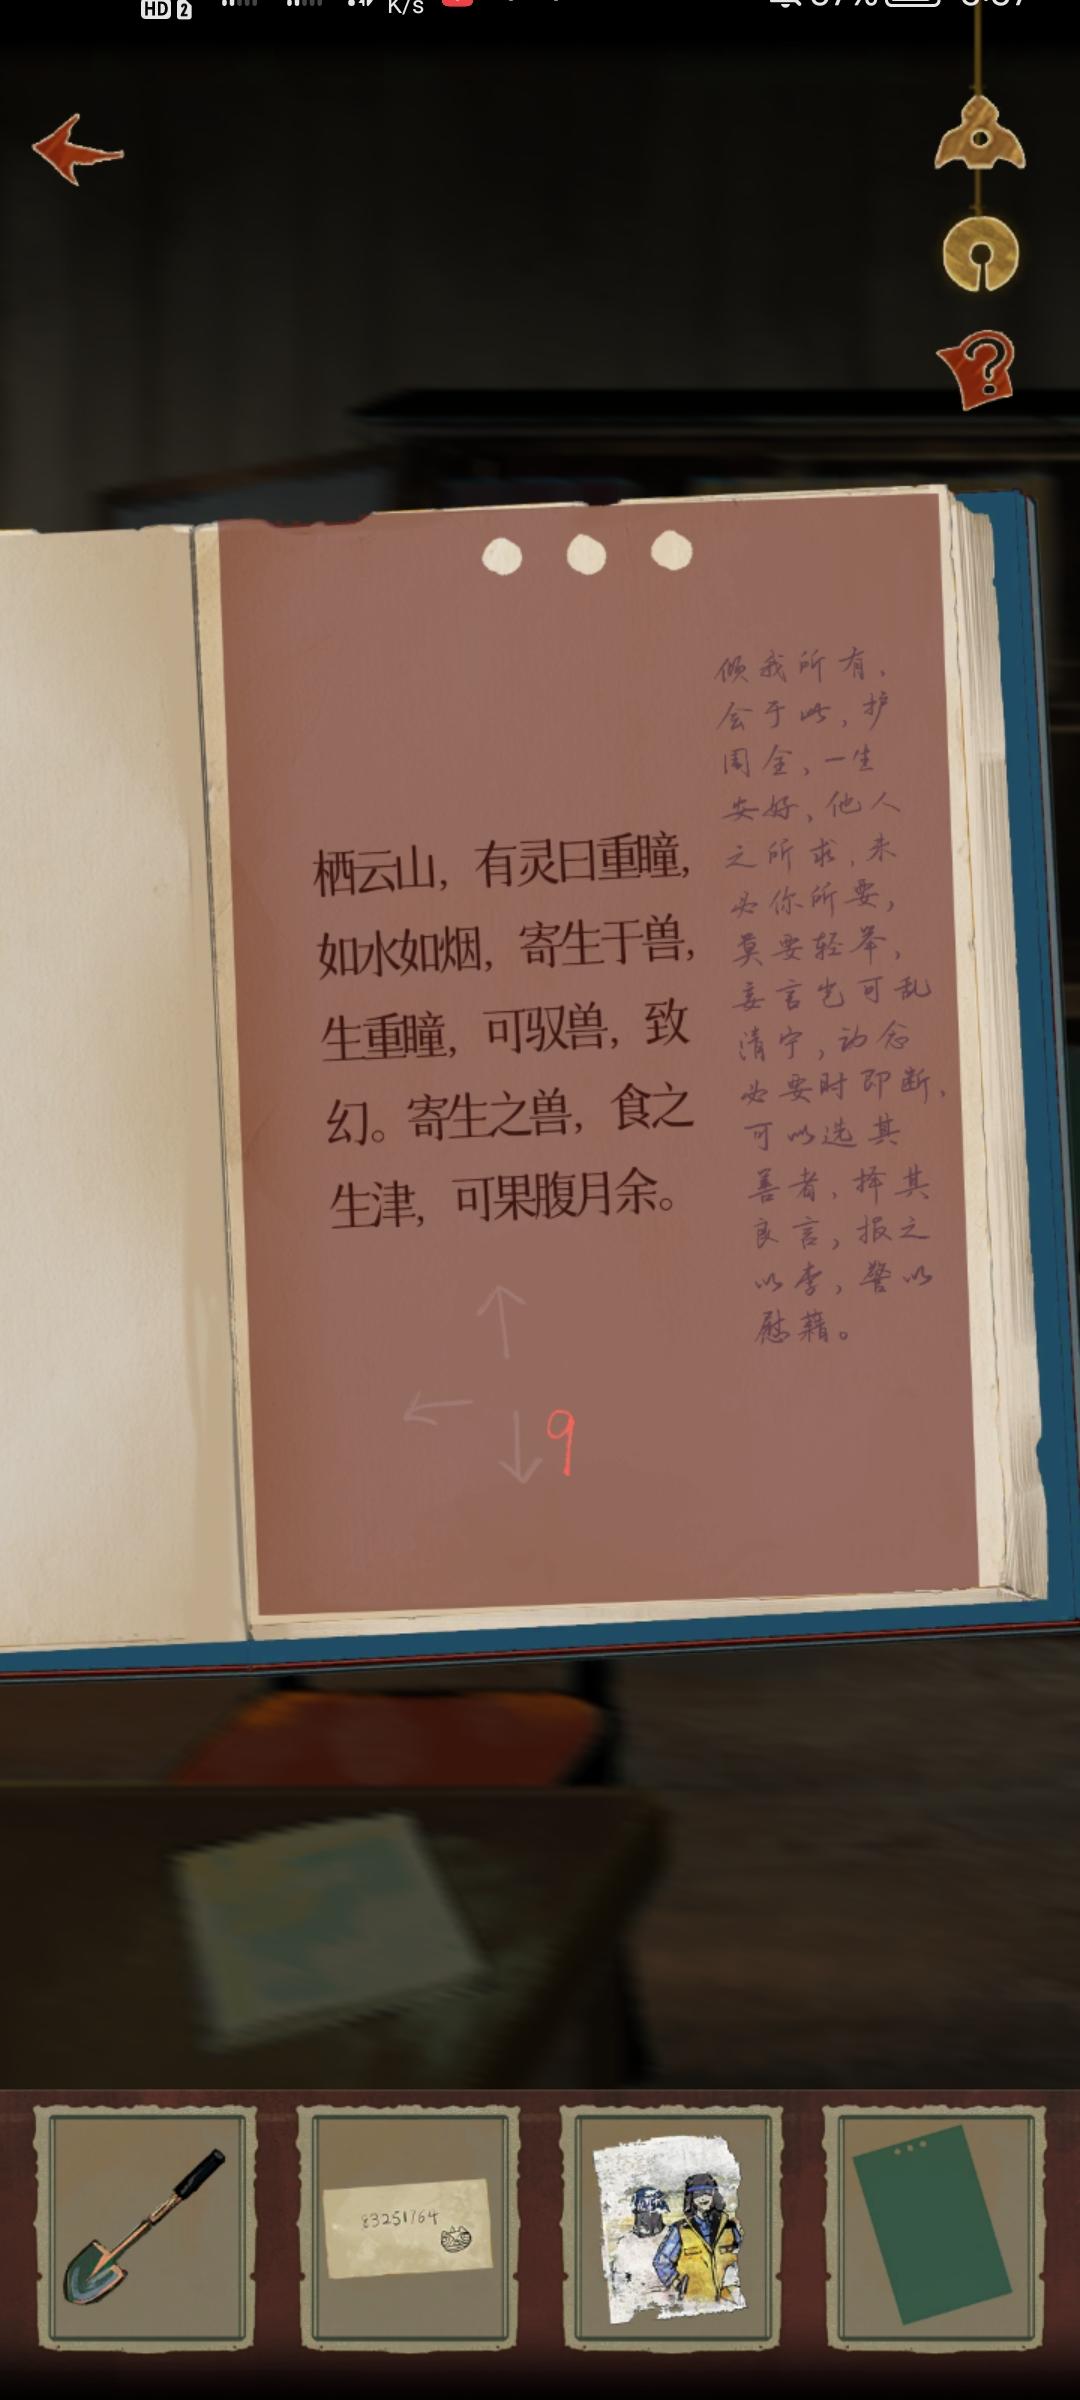 HD 2
K/s
栖云山，有灵曰重瞳，
如水如烟，寄生于兽，
生重瞳，可驭兽，致
幻。寄生之兽，食之
生津，可果腹月余。
倾我所有，
会于此，护
周全，一生
安好，他人
之所求，未
必你所要，
莫要轻举，
妄言岂可乱
清宁，动念
必要时即断，
可以选其
善者，择其
良言，报之
以李，誉以
慰藉。
9
83251764